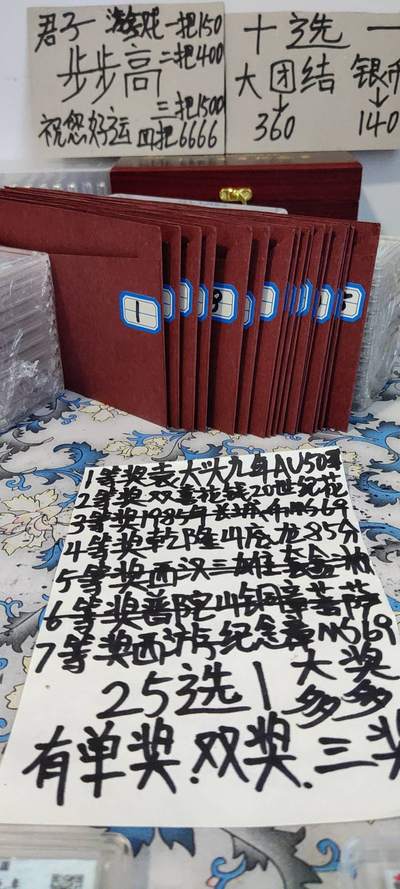 君子 游戏 一把150
步步高 二把400
三把1500
祝您好运 四把6666
十选一
大团结 银币
↓ ↓
360 140
1
8
5
1等奖袁大头九年AU50
2等奖双喜花钱20世纪花
3等奖1985年长城币MS69
4等奖乾隆山底龙85分
5等奖西汉三铢
6等奖普陀山铜章菩萨
7等奖西游记纪念章MS69
25选1 大奖多多
有单奖.双奖.三奖